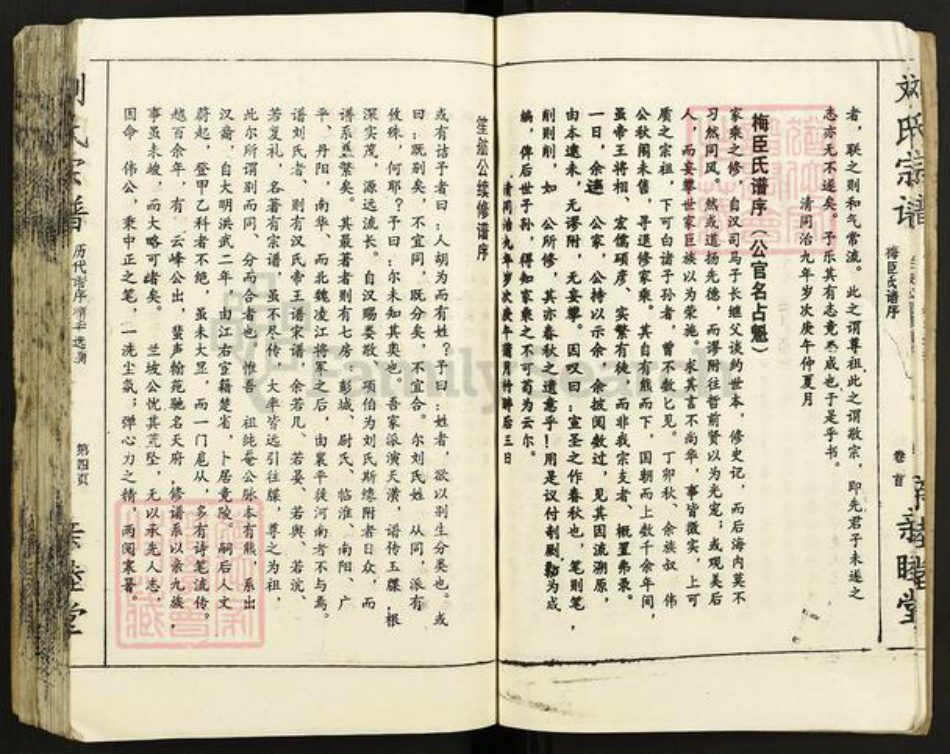 刘氏宗谱
梅臣氏谱序
卷首
亲睦堂
者，联之则和气常流。此之谓尊祖此之谓敬宗，即先君子未遂之
志亦无不遂矣。予乐其有志竟成也于是乎书。
清同治九年岁次庚午仲夏月
梅臣氏谱序（公官名占魁）
家乘之修，自汉司马子长继父谈约世本，修史记，而后海内莫不
习然同风。然或道扬先德，而谬附往哲前贤以为光宠；或观美后
人，而妄攀世家巨族以为荣施。求其言不尚华，事皆徵实，上可
质之宗祖，下可白诸子孙者，曾不数数见。丁卯秋、余族叔 伟
公秋闱未售，寻退修家乘。其自有熊而下，国朝而上数千余年间，
虽帝王将相、宏儒硕彦，实繁有徒，而非我宗支者、概置弗录。
一日，余 公家，公持以示余，余披阅数过，见其因流溯原，
由本逮末，无谬附，无妄攀。因叹曰：宣圣之作春秋也，笔则笔，
削则削，如 公所修，其亦春秋之遗意乎！用是议付剞劂，勒为成
编，俾后世子孙，得知家乘之不可苟为云尔。
清同治九年岁次庚午蒲月竹醉后三日
笙舫公续修谱序
或有诘予者曰：人胡为而有姓？予曰：姓者，欲以别生分类也。或
曰：既别矣，不宜同，既分矣，不宜合。尔刘氏姓 从同，派有
攸殊，何耶？予曰：尔未知其奥也。吾家派演天潢，谱传玉牒，根
深实茂，源远流长。自汉赐娄敬，项伯为刘氏斯缘附者日众，而
谱系益繁矣。其最著者则有七房 彭城、尉氏、临淮、南阳、广
平、丹阳、南华、而北魏凌江将军之后，由襄平徙河南者不与焉。
谱刘氏者、则有汉氏帝王谱宋谱，余若几、若晏、若舆、若沆、
若复礼，名著有宗谱，虽不尽传，大率皆远引往牒，尊之为祖，
此尔所谓别而同、分而合者也惟吾 祖纯菴公脉本有熊，系出
汉裔、自大明洪武二年，由江右宦籍楚省，卜居竟陵。嗣后人文
蔚起，登甲乙科者不绝，虽未大显，而一门扈从 多有诗笔流传。
越百余年，有 云峰公出，蜚声翰苑驰名天府，修谱系以亲九族，
事虽未竣，而大略可睹矣。 兰坡公忧其荒坠，无以承先人志，
因命 伟公，秉中正之笔，一洗尘氛；弹心力之精，两阅寒暑。
刘氏宗谱
历代谱序
第四页
亲睦堂
FamilySearch